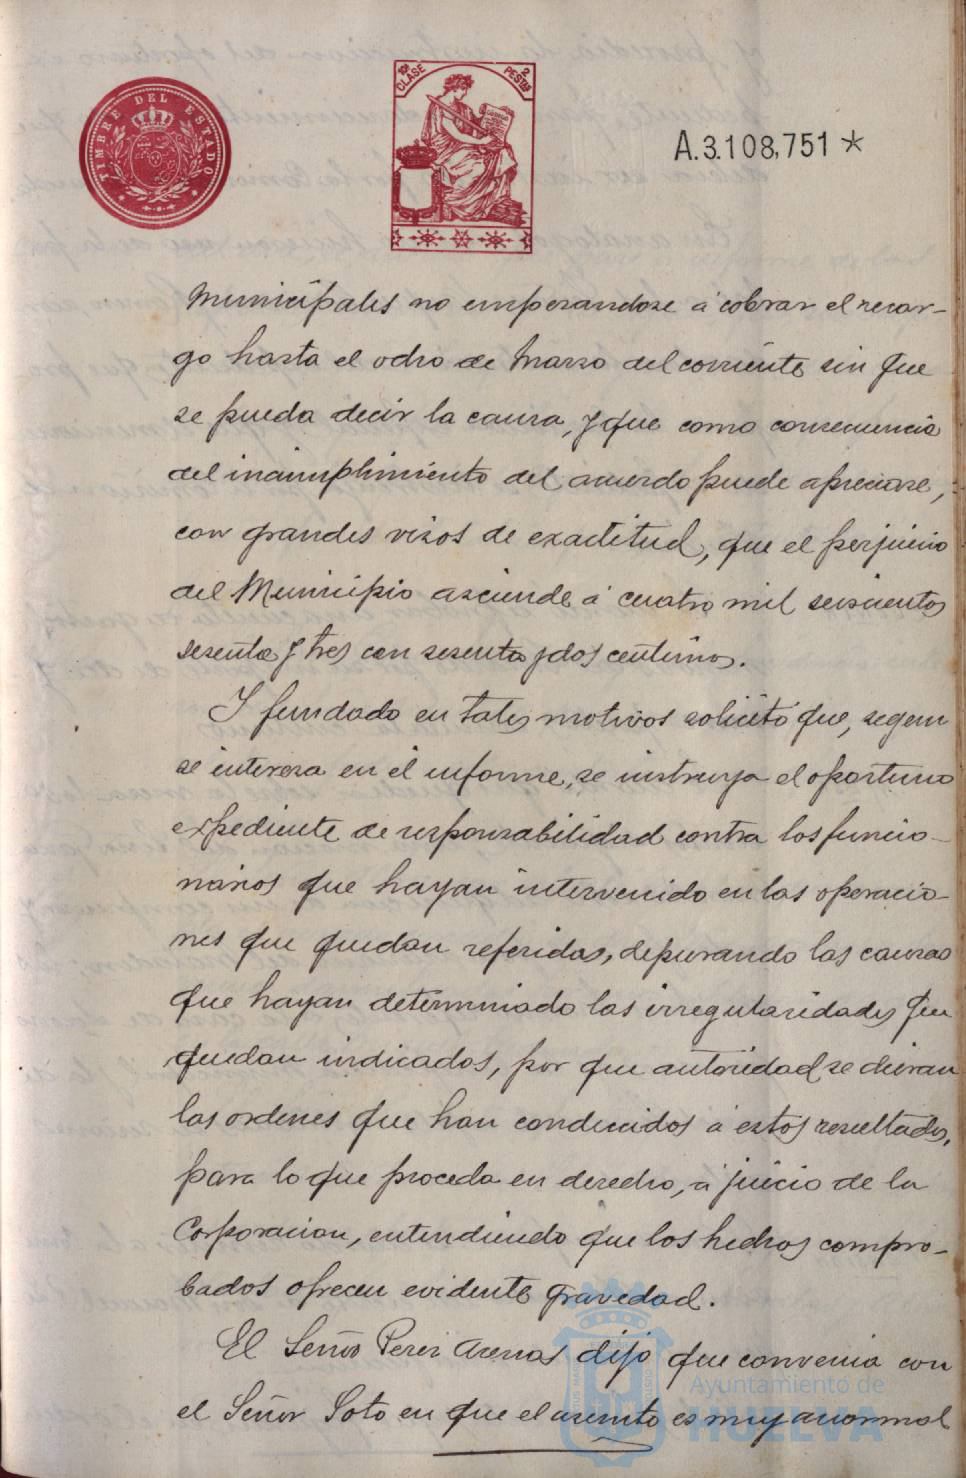 TIMBRE DEL ESTADO
10ª CLASE 2 PESTAS
A.3.108,751 *
Municipales no empesandose á cobrar el recar-
go hasta el ocho de Marzo del corriente sin que
se pueda decir la causa, y que como consecuencia
del incumplimiento del acuerdo puede apreciarse,
con grandes visos de exactitud, que el perjuicio
del Municipio asciende á cuatro mil seiscientos
sesenta y tres con sesenta y dos centimos.
Y fundado en tales motivos solicitó que, segun
se interesa en el informe, se instruya el oportuno
expediente de responsabilidad contra los funcio-
narios que hayan intervenido en las operacio-
nes que quedan referidas, depurando las causas
que hayan determinado las irregularidades que
quedan indicados, por que autoridad se dieran
las ordenes que han conducidos á estos resultados,
para lo que proceda en derecho, á juicio de la
Corporacion, entendiendo que los hechos compro-
bados ofrecen evidente gravedad.
El Señor Perez Arenas dijo que convenia con
el Señor Soto en que el asunto es muy anormal
Ayuntamiento de
HUELVA